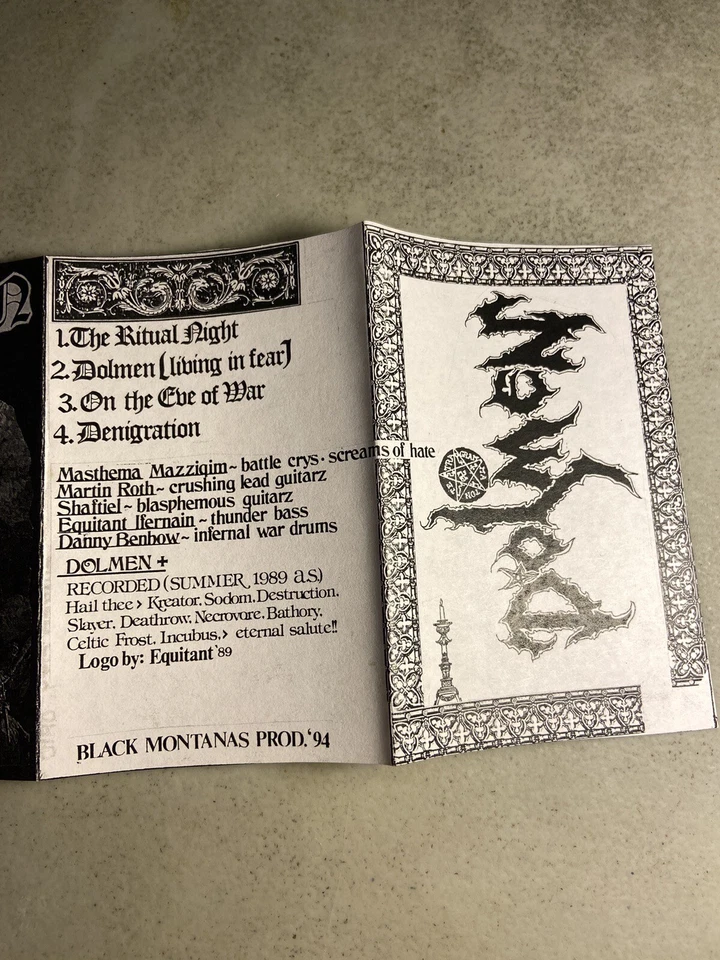 1. The Ritual Night
2. Dolmen [living in fear]
3. On the Eve of War
4. Denigration
Masthema Mazziqim ~ battle crys · screams of hate
Martin Roth ~ crushing lead guitarz
Shaftiel ~ blasphemous guitarz
Equitant Ifernain ~ thunder bass
Danny Benbow ~ infernal war drums
DOLMEN +
RECORDED (SUMMER, 1989 a.s.)
Hail thee > Kreator, Sodom, Destruction,
Slayer, Deathrow, Necrovore, Bathory,
Celtic Frost, Incubus, > eternal salute!!
Logo by: Equitant '89
BLACK MONTANAS PROD. '94
DOLMEN